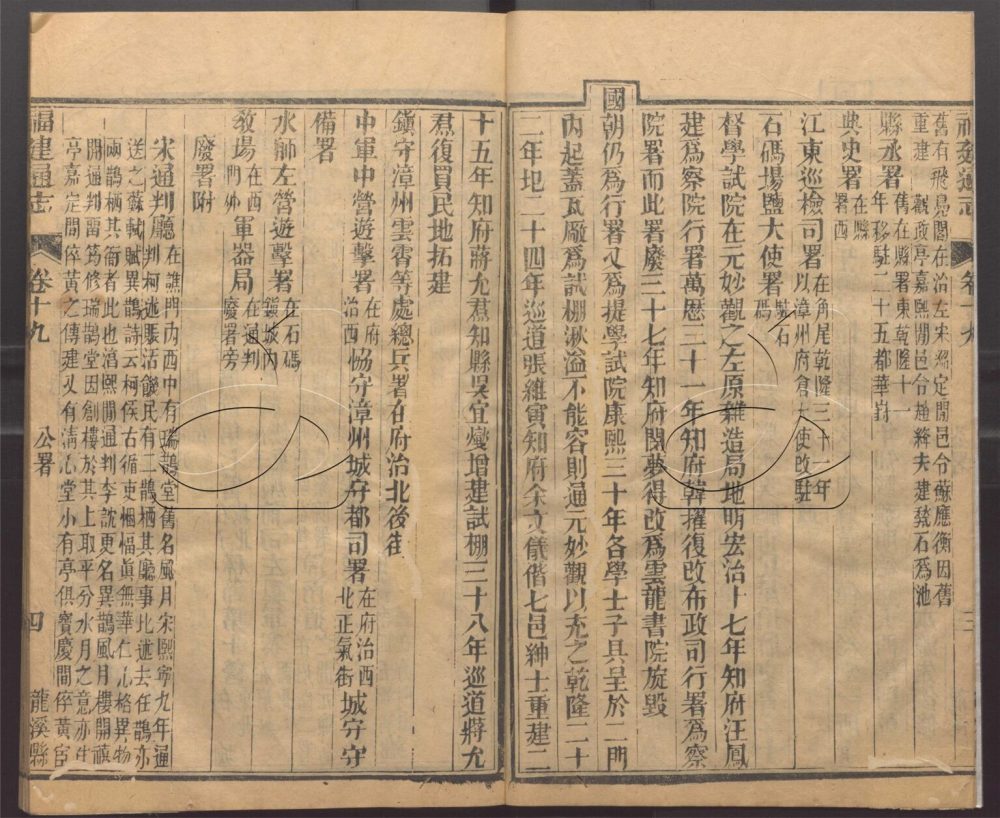 舊有飛鳧閣在治左宋嘉定間邑令蘇應衡因舊
重建 觀政亭嘉熙間邑令趙綘夫建甃石爲池
縣丞署舊在縣署東乾隆十一
年移駐二十五都華崶
典史署在縣
署西
江東巡檢司署在角尾乾隆三十一年
以漳州府倉大使改駐
石碼場鹽大使署駐石
碼
督學試院在元妙觀之左原雜造局地明宏治十七年知府汪鳳
建爲察院行署萬曆三十一年知府韓擢復改布政司行署爲察
院署而此署廢三十七年知府閔夢得改爲雲龍書院旋毀
國朝仍爲行署又爲提學試院康熙三十年各學士子具呈於二門
內起蓋瓦廠爲試棚湫溢不能容則通元妙觀以充之乾隆二十
二年圯二十四年巡道張維寅知府余文儀偕七邑紳士重建二
十五年知府蔣允焄知縣吳宜燮增建試棚三十八年巡道蔣允
焄復買民地拓建
鎮守漳州雲霄等處總兵署在府治北後街
中軍中營遊擊署在府
治西 協守漳州城守都司署在府治西
北正氣街 城守守
備署
水師左營遊擊署在石碼
鎮城內
敎場在西
門外 軍器局在通判
廢署旁
廢署附
宋通判廳在譙門內西中有瑞鵲堂舊名風月宋熙寧九年通
判柯述賑活饑民有二鵲栖其廳事比逝去任鵲亦
送之蘇軾賦異鵲詩云柯侯古循吏悃愊眞無華仁心格異物
兩鵲栖其衙者此也淳熙間通判李訦更名異鵲風月樓開禧
間通判留筠修瑞鵲堂因創樓於其上取平分水月之意亦生
亭嘉定間倅黃之傳建又有淸心堂小有亭俱寶慶間倅黃宦
福建通志 卷十九 公署 四 龍溪縣